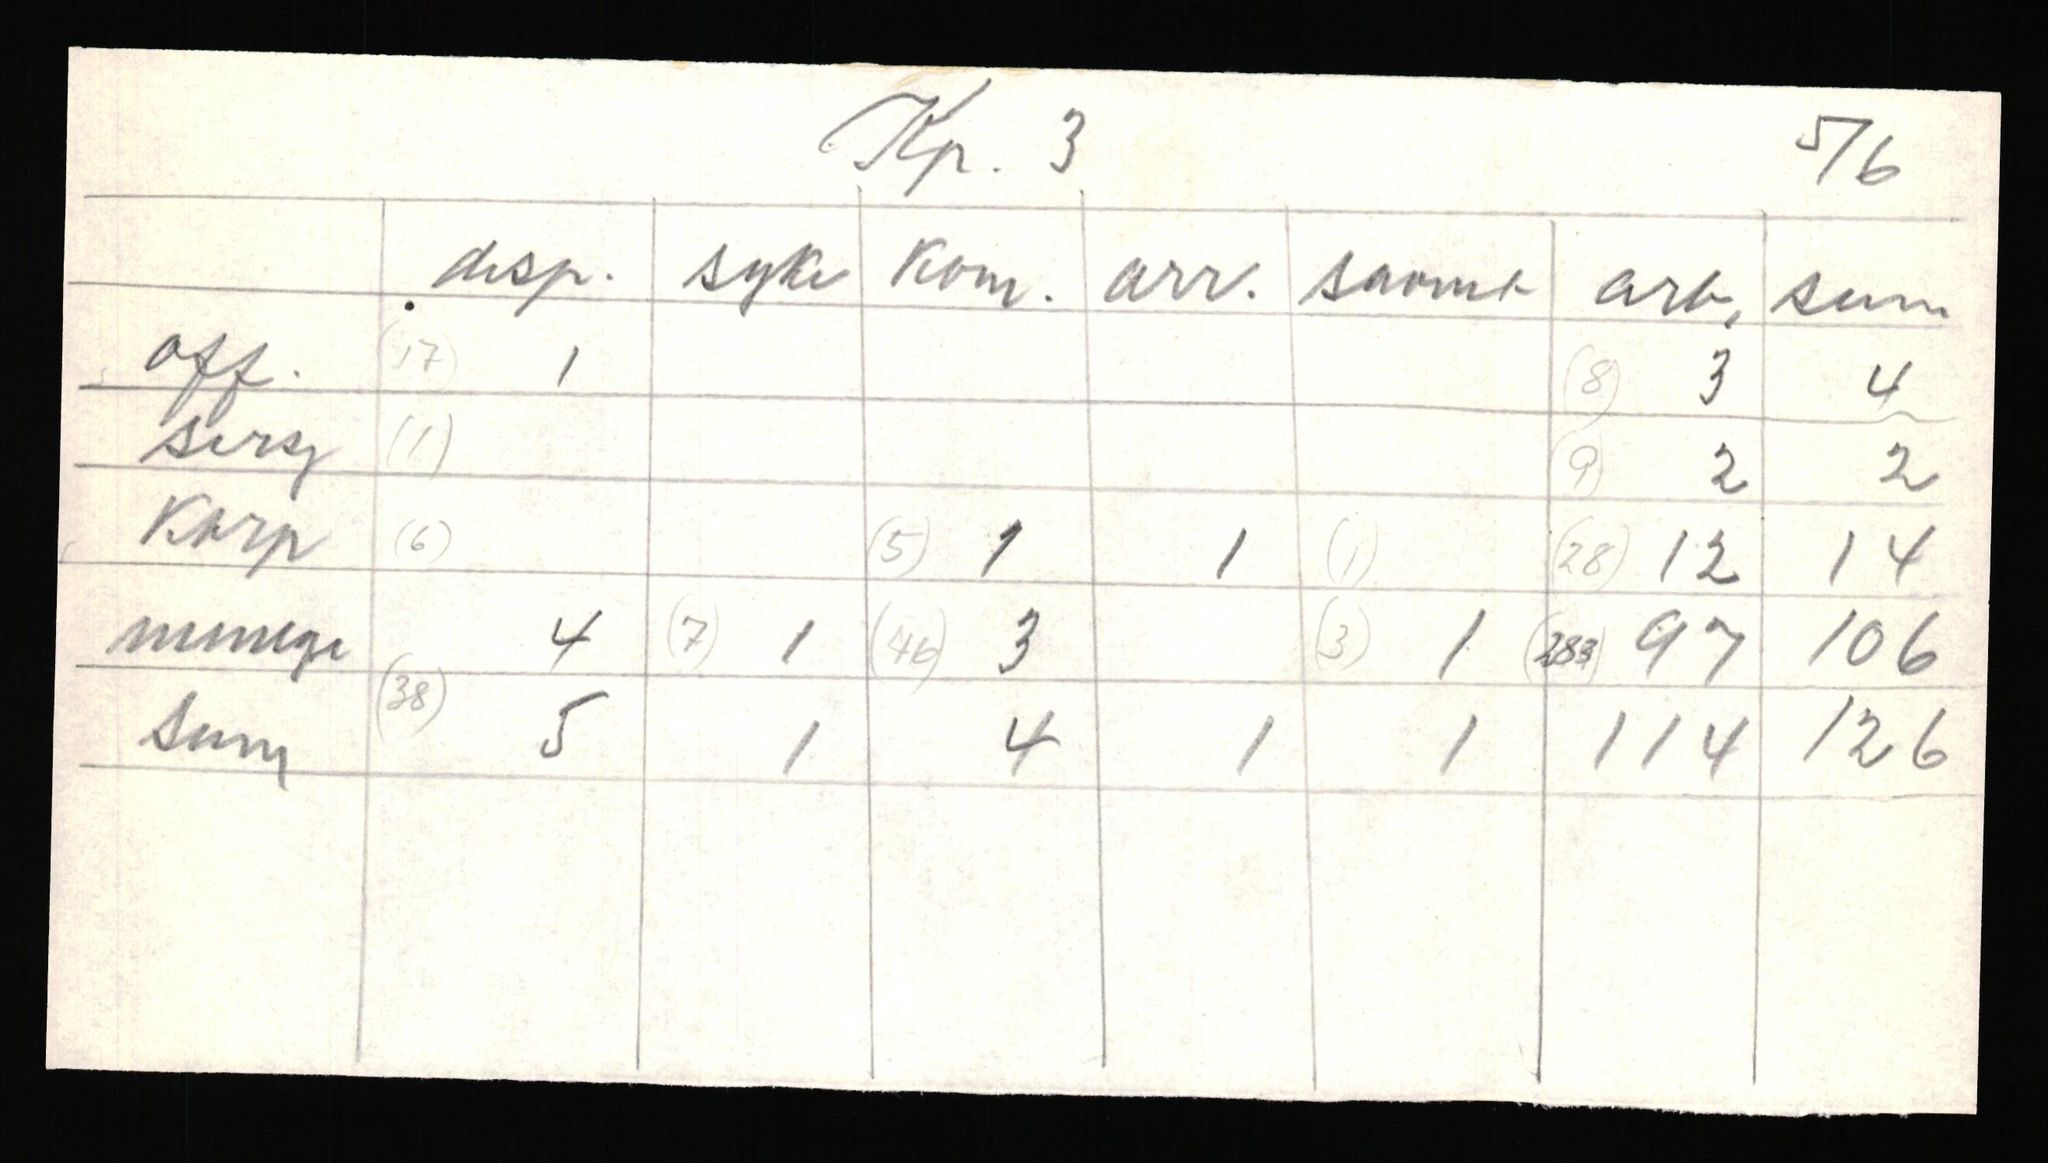 Kp. 3 5/6
disp. syke Kom. arr. arb. sum
off. (17) 1 (8) 3 4
sersj (1) (9) 2 2
Korp (6) (5) 1 1 (1) (28) 12 14
menige 4 (7) 1 (46) 3 (3) 1 (283) 97 106
sum (38) 5 1 4 1 1 114 126